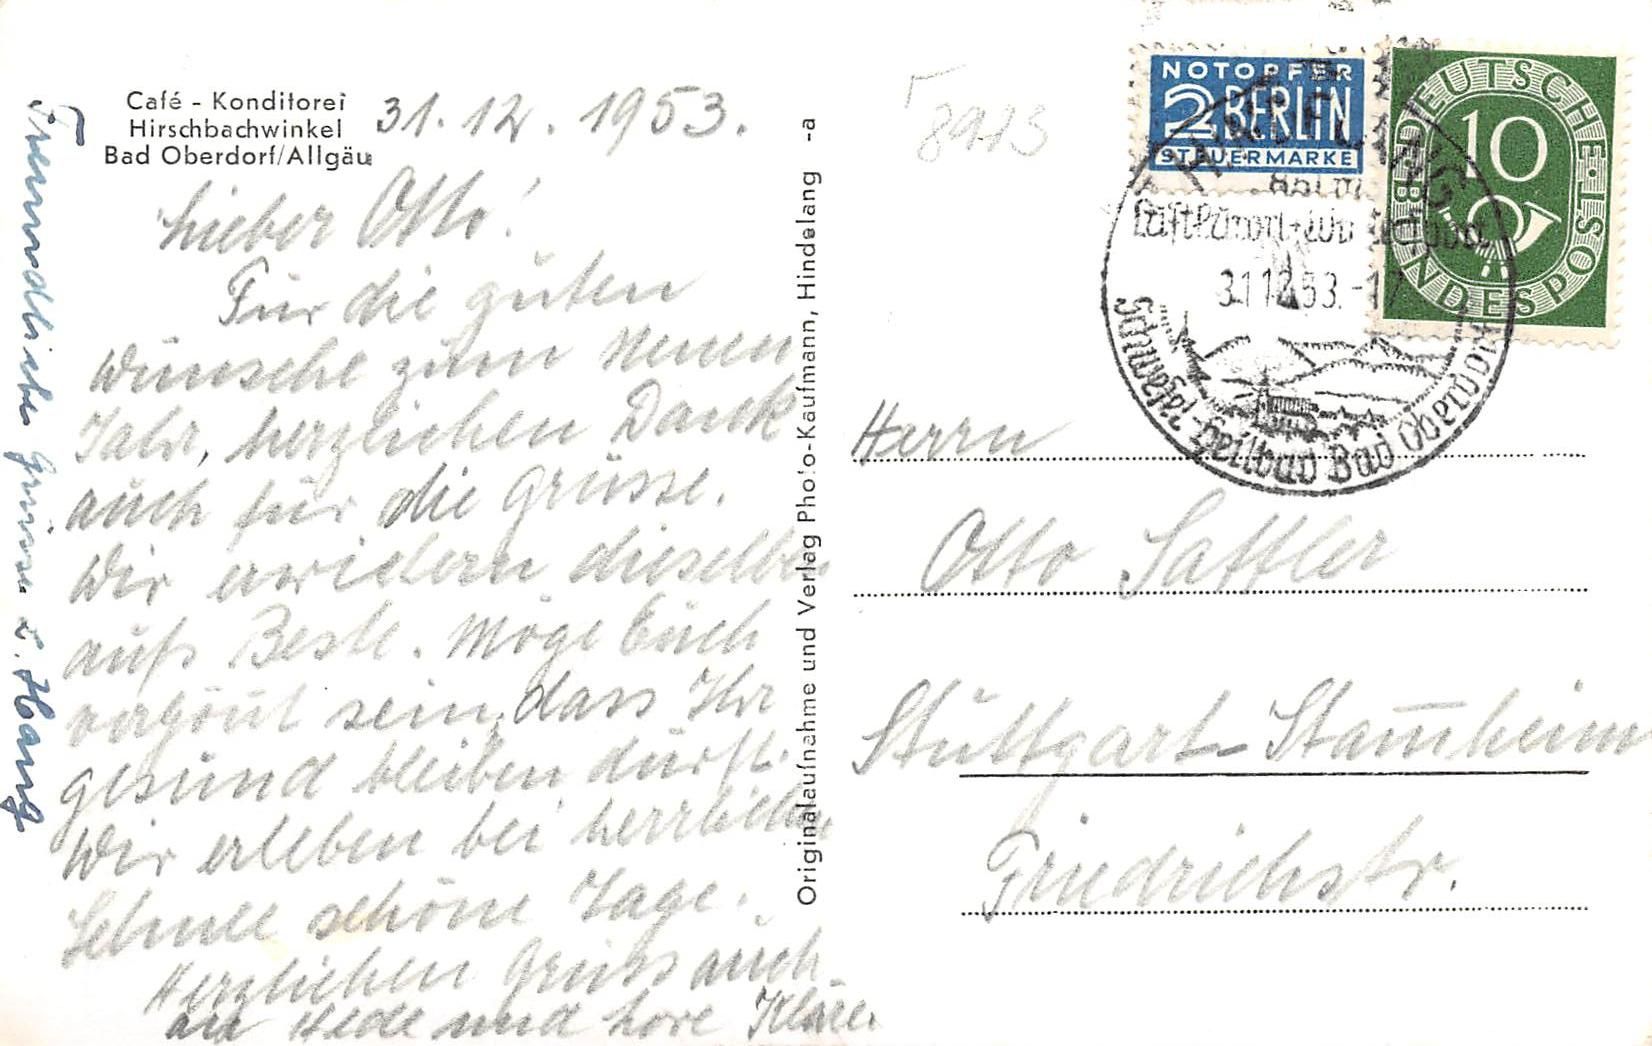 Café - Konditorei
Hirschbachwinkel
Bad Oberdorf/Allgäu
31.12.1953.
Lieber Otto!
Für die guten
Wünsche zum Neuen
Jahr, herzlichen Dank
auch für die Grüsse.
Wir erwidern dieselben
aufs Beste. Möge Euch
vergönnt sein, dass Ihr
gesund bleiben dürft.
Wir erleben bei herrlichem
Schnee schöne Tage.
Herzlichen Gruss auch
an Hede und Lore Kläre.
Freundliche Grüsse
Originalaufnahme und Verlag Photo-Kaufmann, Hindelang -a
NOTOPFER
2 BERLIN
STEUERMARKE
DEUTSCHE BUNDESPOST
10
HINDELANG
31.12.53.-17
Schwefel-Heilbad Bad Oberdorf
Herrn
Otto Sattler
Stuttgart-Stammheim
Friedrichstr.